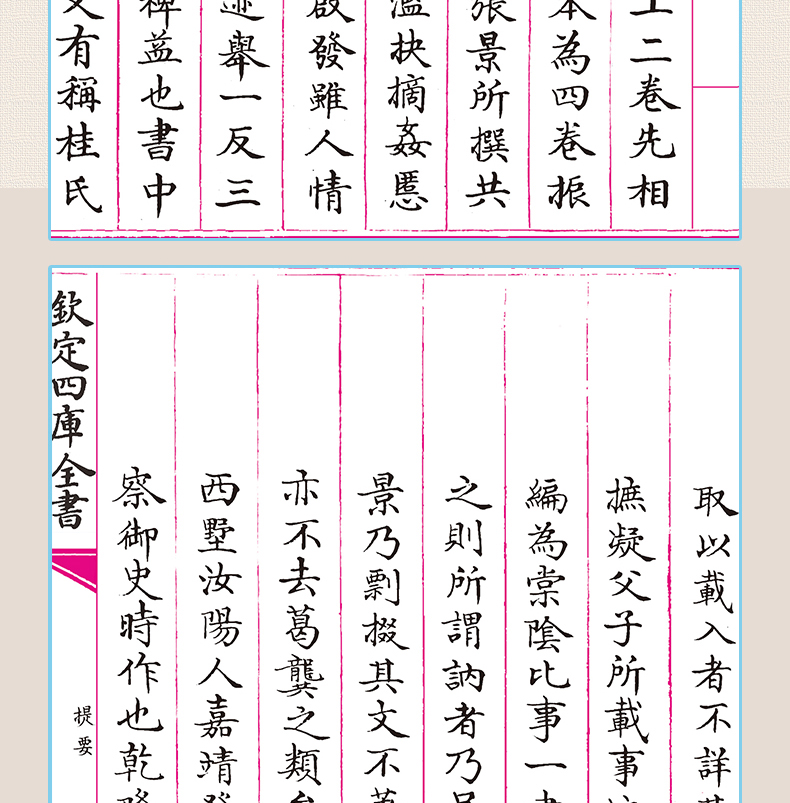 二卷先相
為四卷振
景所撰共
抉摘姦慝
發雖人情
舉一反三
益也書中
有稱桂氏
取以載入者不詳
摭凝父子所載事
編為棠陰比事一
之則所謂訥者乃
景乃剽掇其文不
亦不去葛龔之類
西墅汝陽人嘉靖
察御史時作也乾
欽定四庫全書
提要